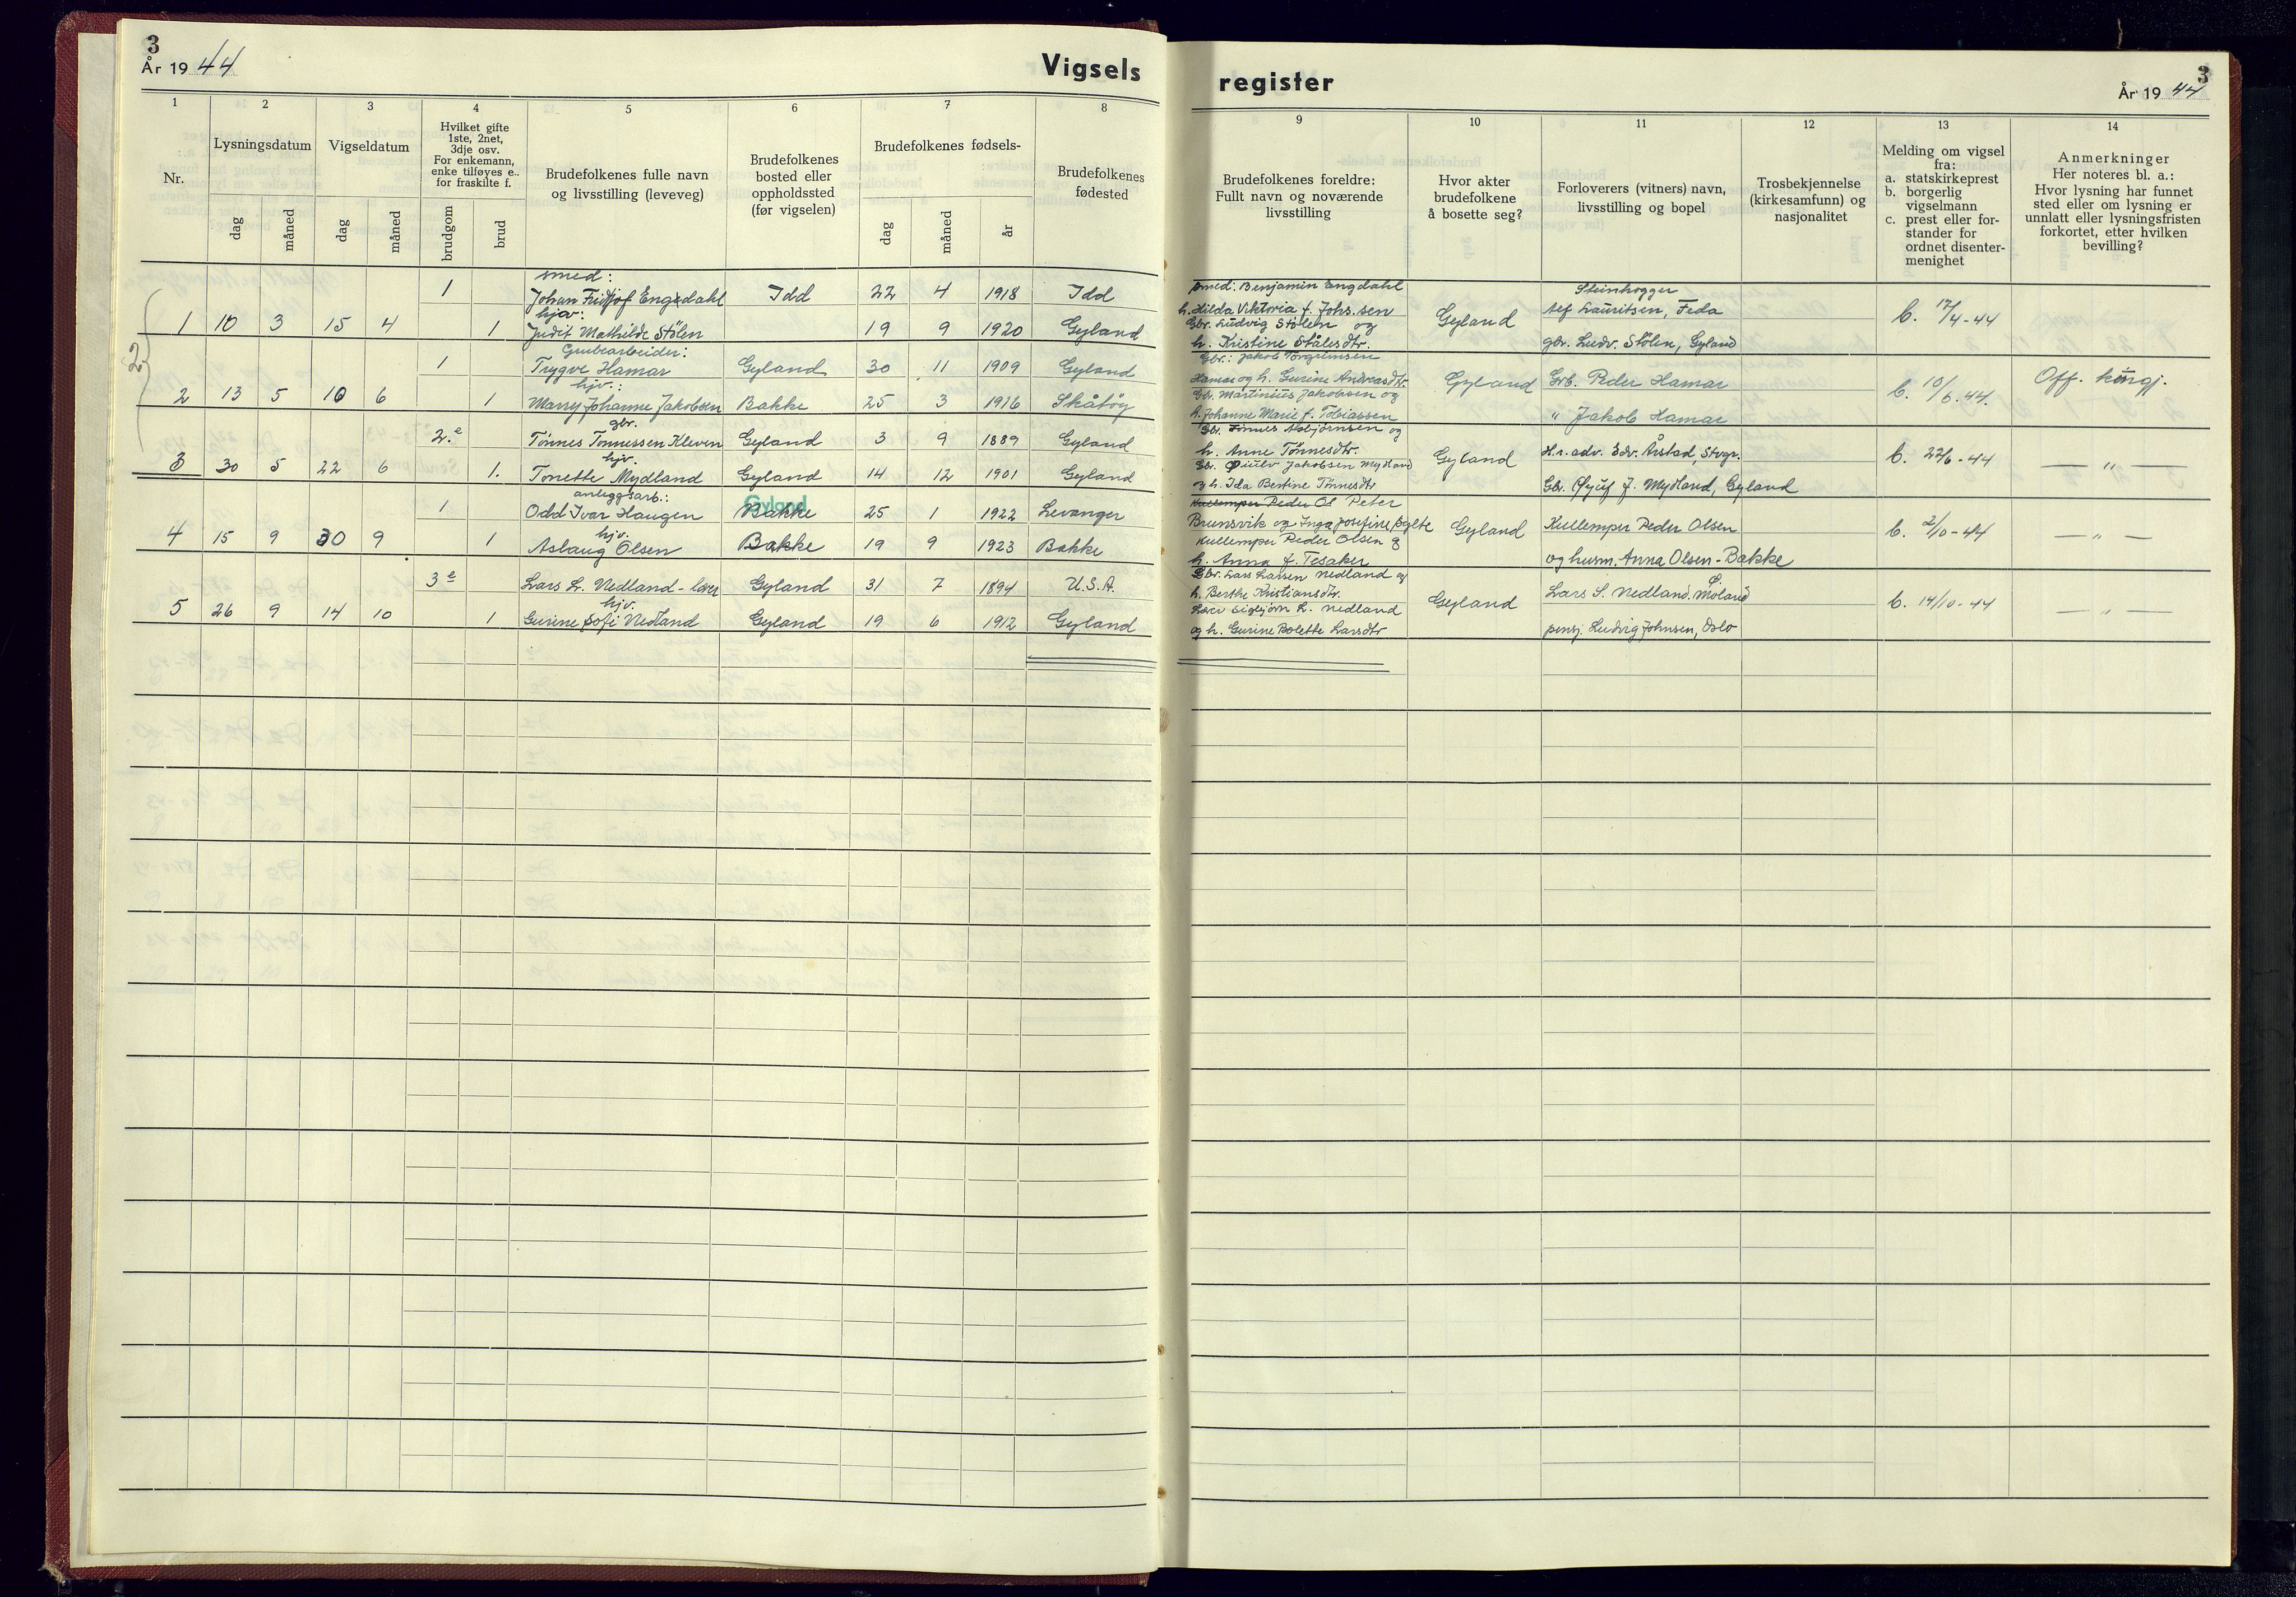 3
År 19 44
Vigsels
1 2 3 4 5 6 7 8
Nr.
Lysningsdatum
Vigseldatum
Hvilket gifte
1ste, 2net,
3dje osv.
For enkemann,
enke tilføyes e..
for fraskilte f.
Brudefolkenes fulle navn
og livsstilling (leveveg)
Brudefolkenes
bosted eller
oppholdssted
(før vigselen)
Brudefolkenes fødsels-
Brudefolkenes
fødested
dag måned dag måned brudgom brud dag måned år
smed:
1 Johan Fridtjof Engedahl Idd 22 4 1918 Idd
hjv:
1 10 3 15 4 1 Judit Mathilde Stölen 19 9 1920 Gyland
2
Grubearbeider:
1 Trygve Hamar Gyland 30 11 1909 Gyland
hjv.:
2 13 5 10 6 1 Marry Johanne Jakobsen Bakke 25 3 1916 Skåtøy
gbr.
2.e Tönnes Tönnessen Kleven Gyland 3 9 1889 Gyland
hjv.
3 30 5 22 6 1. Tonette Mydland Gyland 14 12 1901 Gyland
anleggsarb.:
Gyland
1 Odd Ivar Haugen Bakke 25 1 1922 Levanger
hjv.
4 15 9 30 9 1 Aslaug Olsen Bakke 19 9 1923 Bakke
3e Lars L. Nedland - lærer Gyland 31 7 1894 U.S.A.
hjv.
5 26 9 14 10 1 Gurine Sofi Nedland Gyland 19 6 1912 Gyland
register
3
År 19 44
9 10 11 12 13 14
Brudefolkenes foreldre:
Fullt navn og noværende
livsstilling
Hvor akter
brudefolkene
å bosette seg?
Forloverers (vitners) navn,
livsstilling og bopel
Trosbekjennelse
(kirkesamfunn) og
nasjonalitet
Melding om vigsel
fra:
a. statskirkeprest
b. borgerlig
vigselmann
c. prest eller for-
stander for
ordnet disenter-
menighet
Anmerkninger
Her noteres bl. a.:
Hvor lysning har funnet
sted eller om lysning er
unnlatt eller lysningsfristen
forkortet, etter hvilken
bevilling?
smed: Benjamin Engdahl
h. Hilda Viktoria f. Johs.sen
Gbr. Ludvig Stölen og
h. Kristine Stålesdtr.
Gyland
Steinhogger
Alf Lauritsen, Feda
gbr. Ludv. Stölen, Gyland
b. 17/4-44
Gbr.: Jakob Torgrimsen
Hamar og h. Gurine Andreasdtr.
Gb. Martinius Jakobsen og
h. Johanne Marie f. Tobiassen
Gyland
Grb. Peder Hamar
" Jakob Hamar
b. 10/6.44.
Off. kungj.
Gbr. Tönnes Asbjörnsen og
h. Anne Tönnesdtr.
Jakobsen Mydland
og h. Ida Bertine Tönnesdtr
Gyland
H.r.adv. Edv. Årstad, Stvgr.
J. Mydland, Gyland
b. 22/6-44
— " —
Kullemper Peder Ol Peter
Brunsvik og Inga Josefine
Kullemper Peder Olsen og
h. Anna f. Tesaker
Gyland
Kullemper Peder Olsen
og husm. Anna Olsen - Bakke
b. 2/10-44
— " —
Gbr. Lars Larsen Nedland og
h. Berthe Kristiansdtr.
Lærer Sigbjörn L. Nedland
og h. Gurine Bolette Larsdtr
Gyland
Lars S. Nedland. Moland
pensj. Ludvig Johnsen, Oslo
b. 14/10-44
— " —